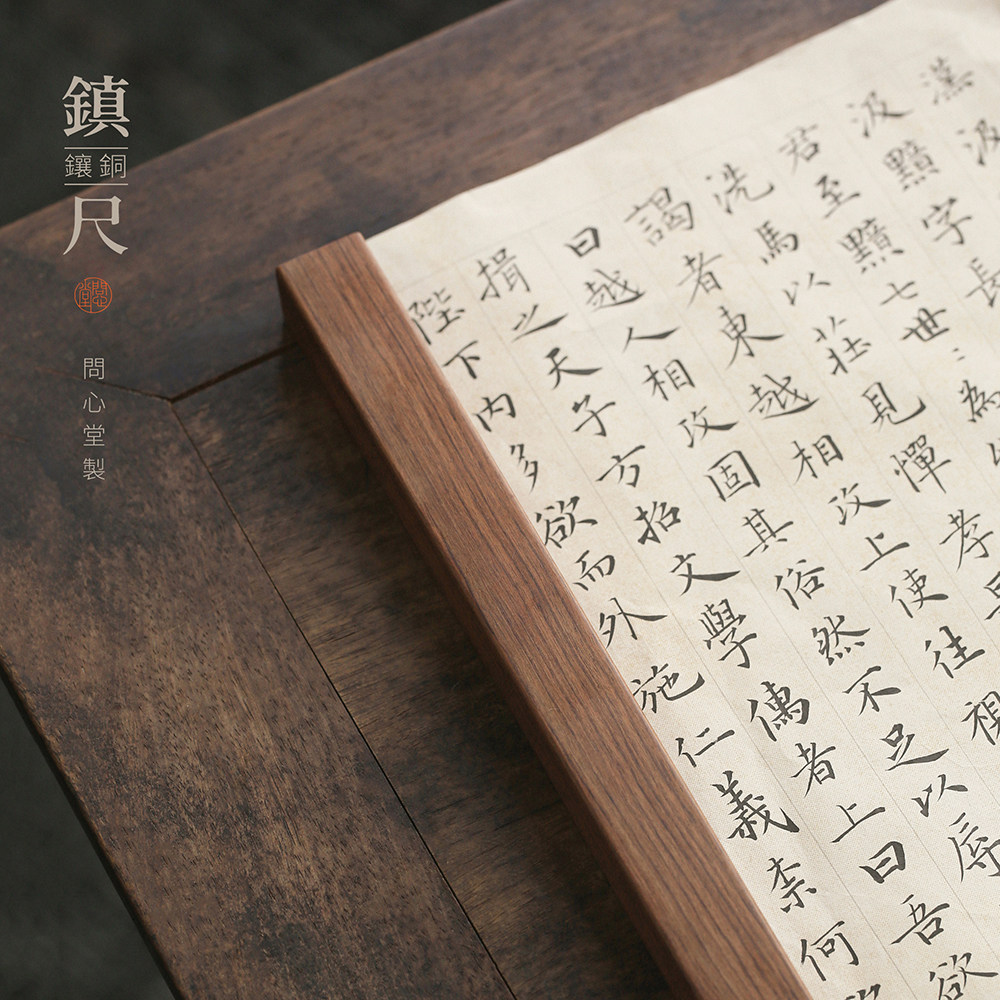 鎮
鑲銅
尺
問心堂製
漢汲
汲黯字長
君至黯七世〻為
洗馬以莊見憚孝
謁者東越相攻上使往視
曰越人相攻固其俗然不足以辱
揖之天子方招文學儒者上曰吾欲
陛下内多欲而外施仁義柰何